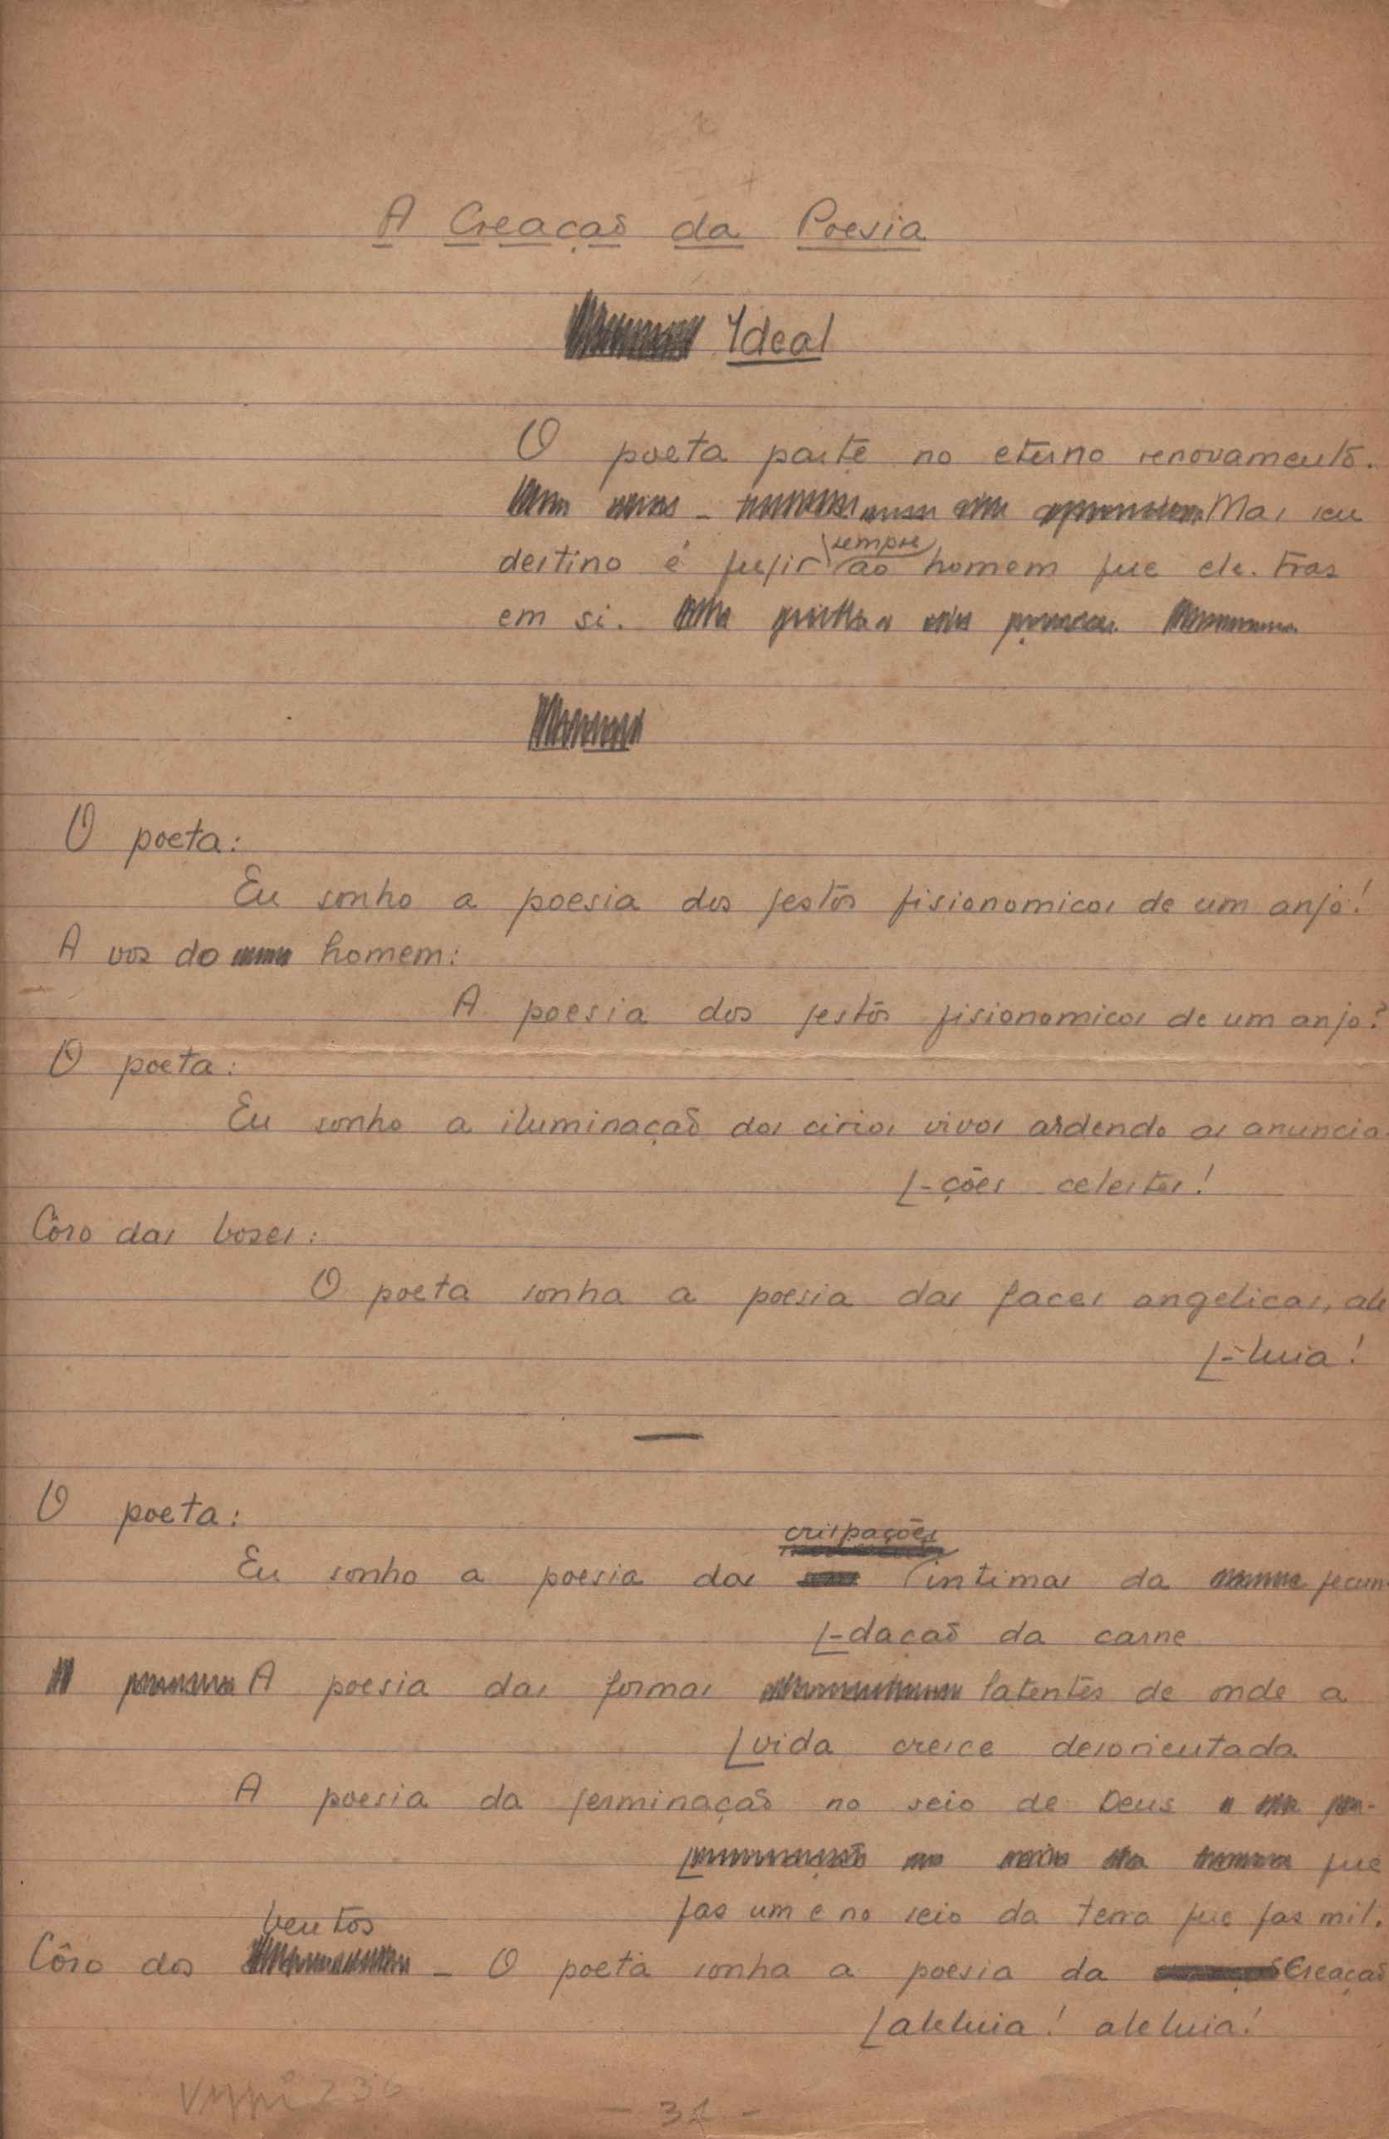 A Creação da Poesia
Ideal
O poeta parte no eterno renovamento.
Mas seu
sempre
destino é fugir ao homem que ele tras
em si.
O poeta:
Eu sonho a poesia dos gestos fisionomicos de um anjo!
A vos do homem:
A poesia dos gestos fisionomicos de um anjo?
O poeta:
Eu sonho a iluminação dos cirios vivos ardendo as anuncia
[-ções celestes!
Côro das vozes:
O poeta sonha a poesia das faces angelicas, ale
[-luia!
O poeta:
crispações
Eu sonho a poesia das intimas da fecun-
[-dacão da carne
A poesia das formas latentes de onde a
[vida cresce desorientada
A poesia da germinação no seio de Deus
que
fas um e no seio da terra que fas mil.
ventos
Côro dos - O poeta sonha a poesia da Creação
[aleluia! aleluia!